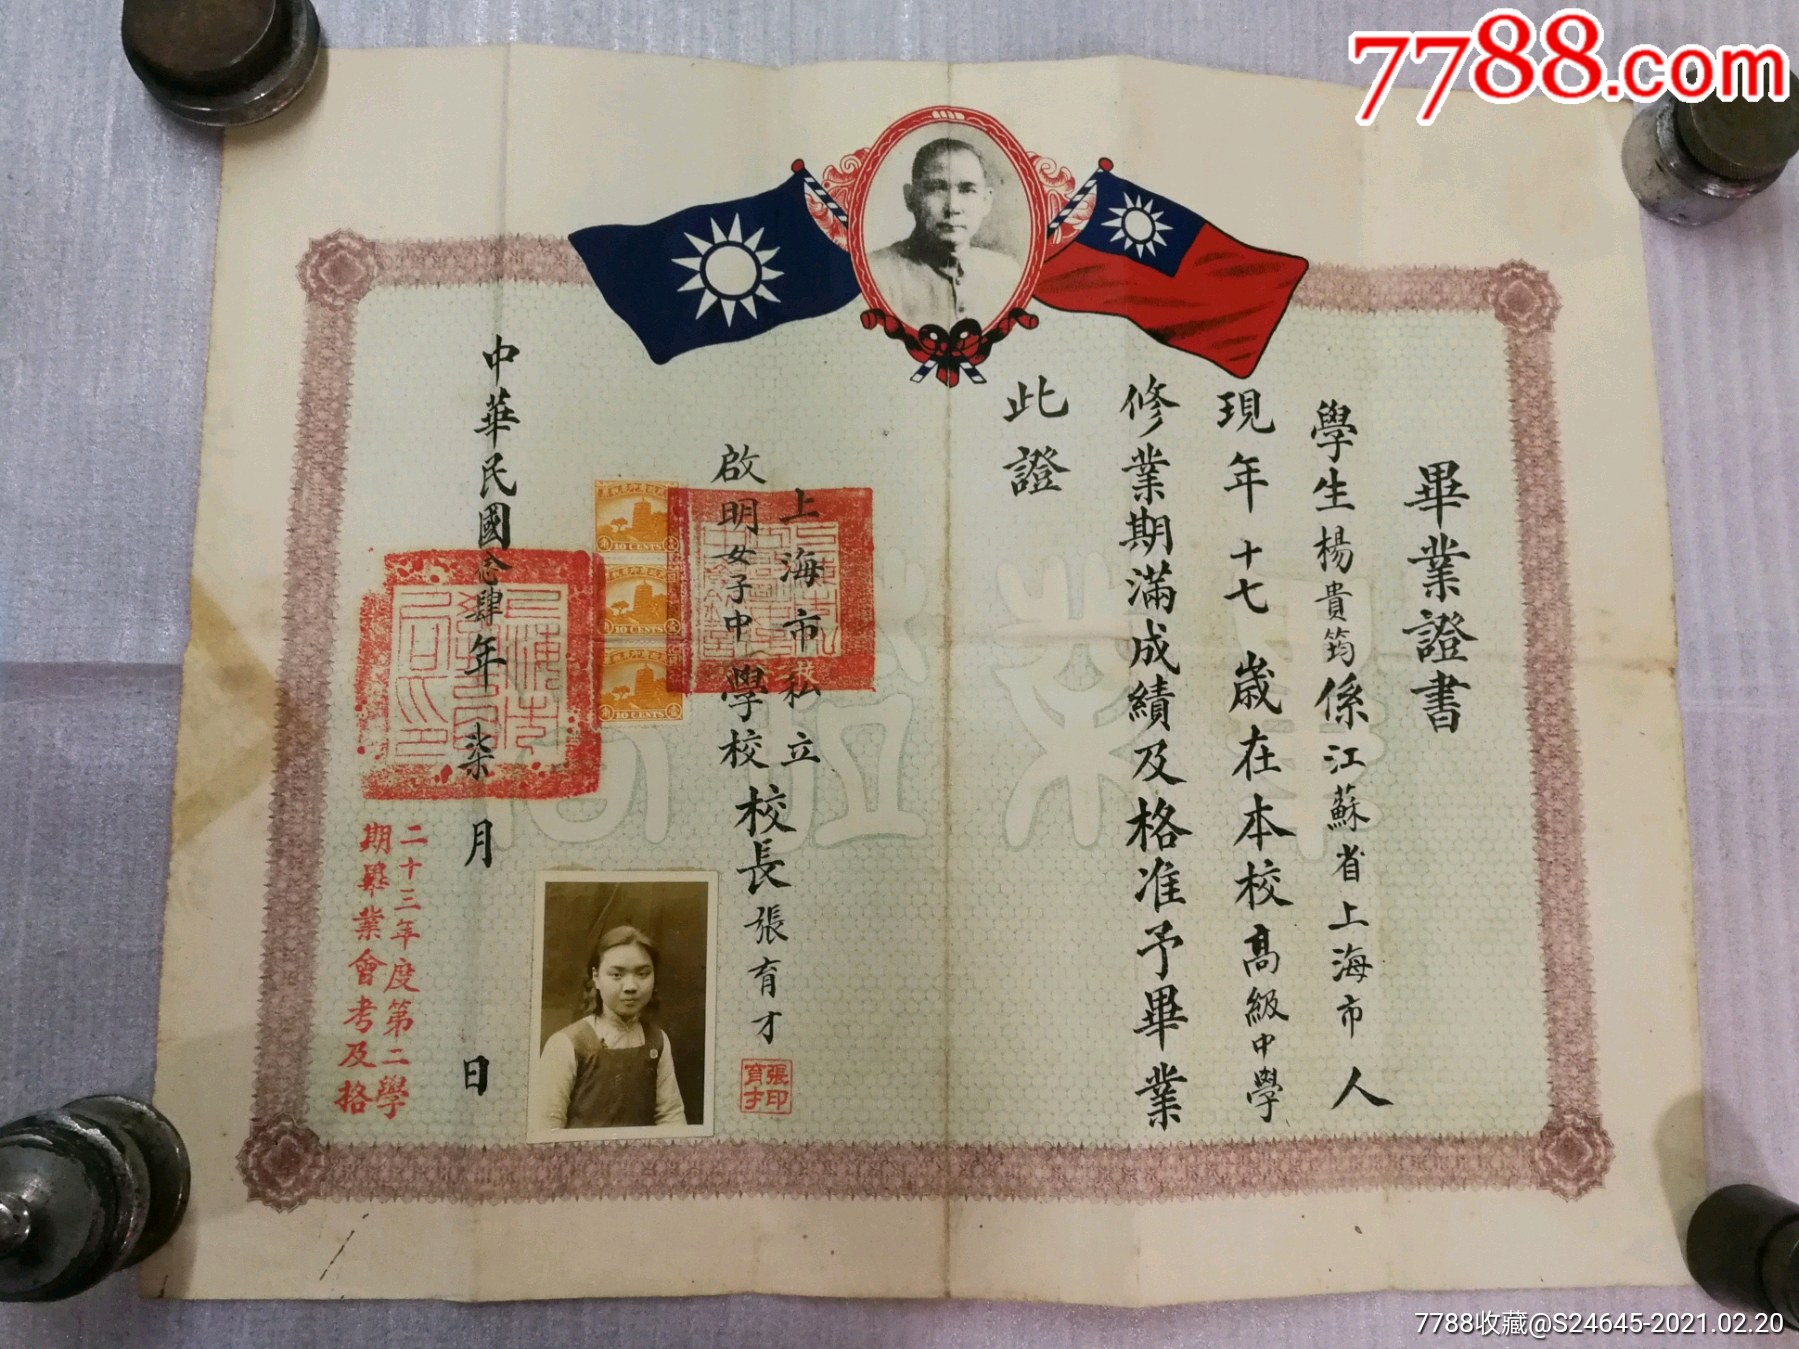 畢業證書
學生楊貴筠係江蘇省上海市人
現年十七歲在本校高級中學
修業期滿成績及格准予畢業
此證
上海市私立
啟明女子中學校
校長張育才
張育才印
中華民國念肆年柒月 日
二十三年度第二學
期畢業會考及格
10 CENTS
10 CENTS
10 CENTS
7788.com
7788收藏@S24645-2021.02.20